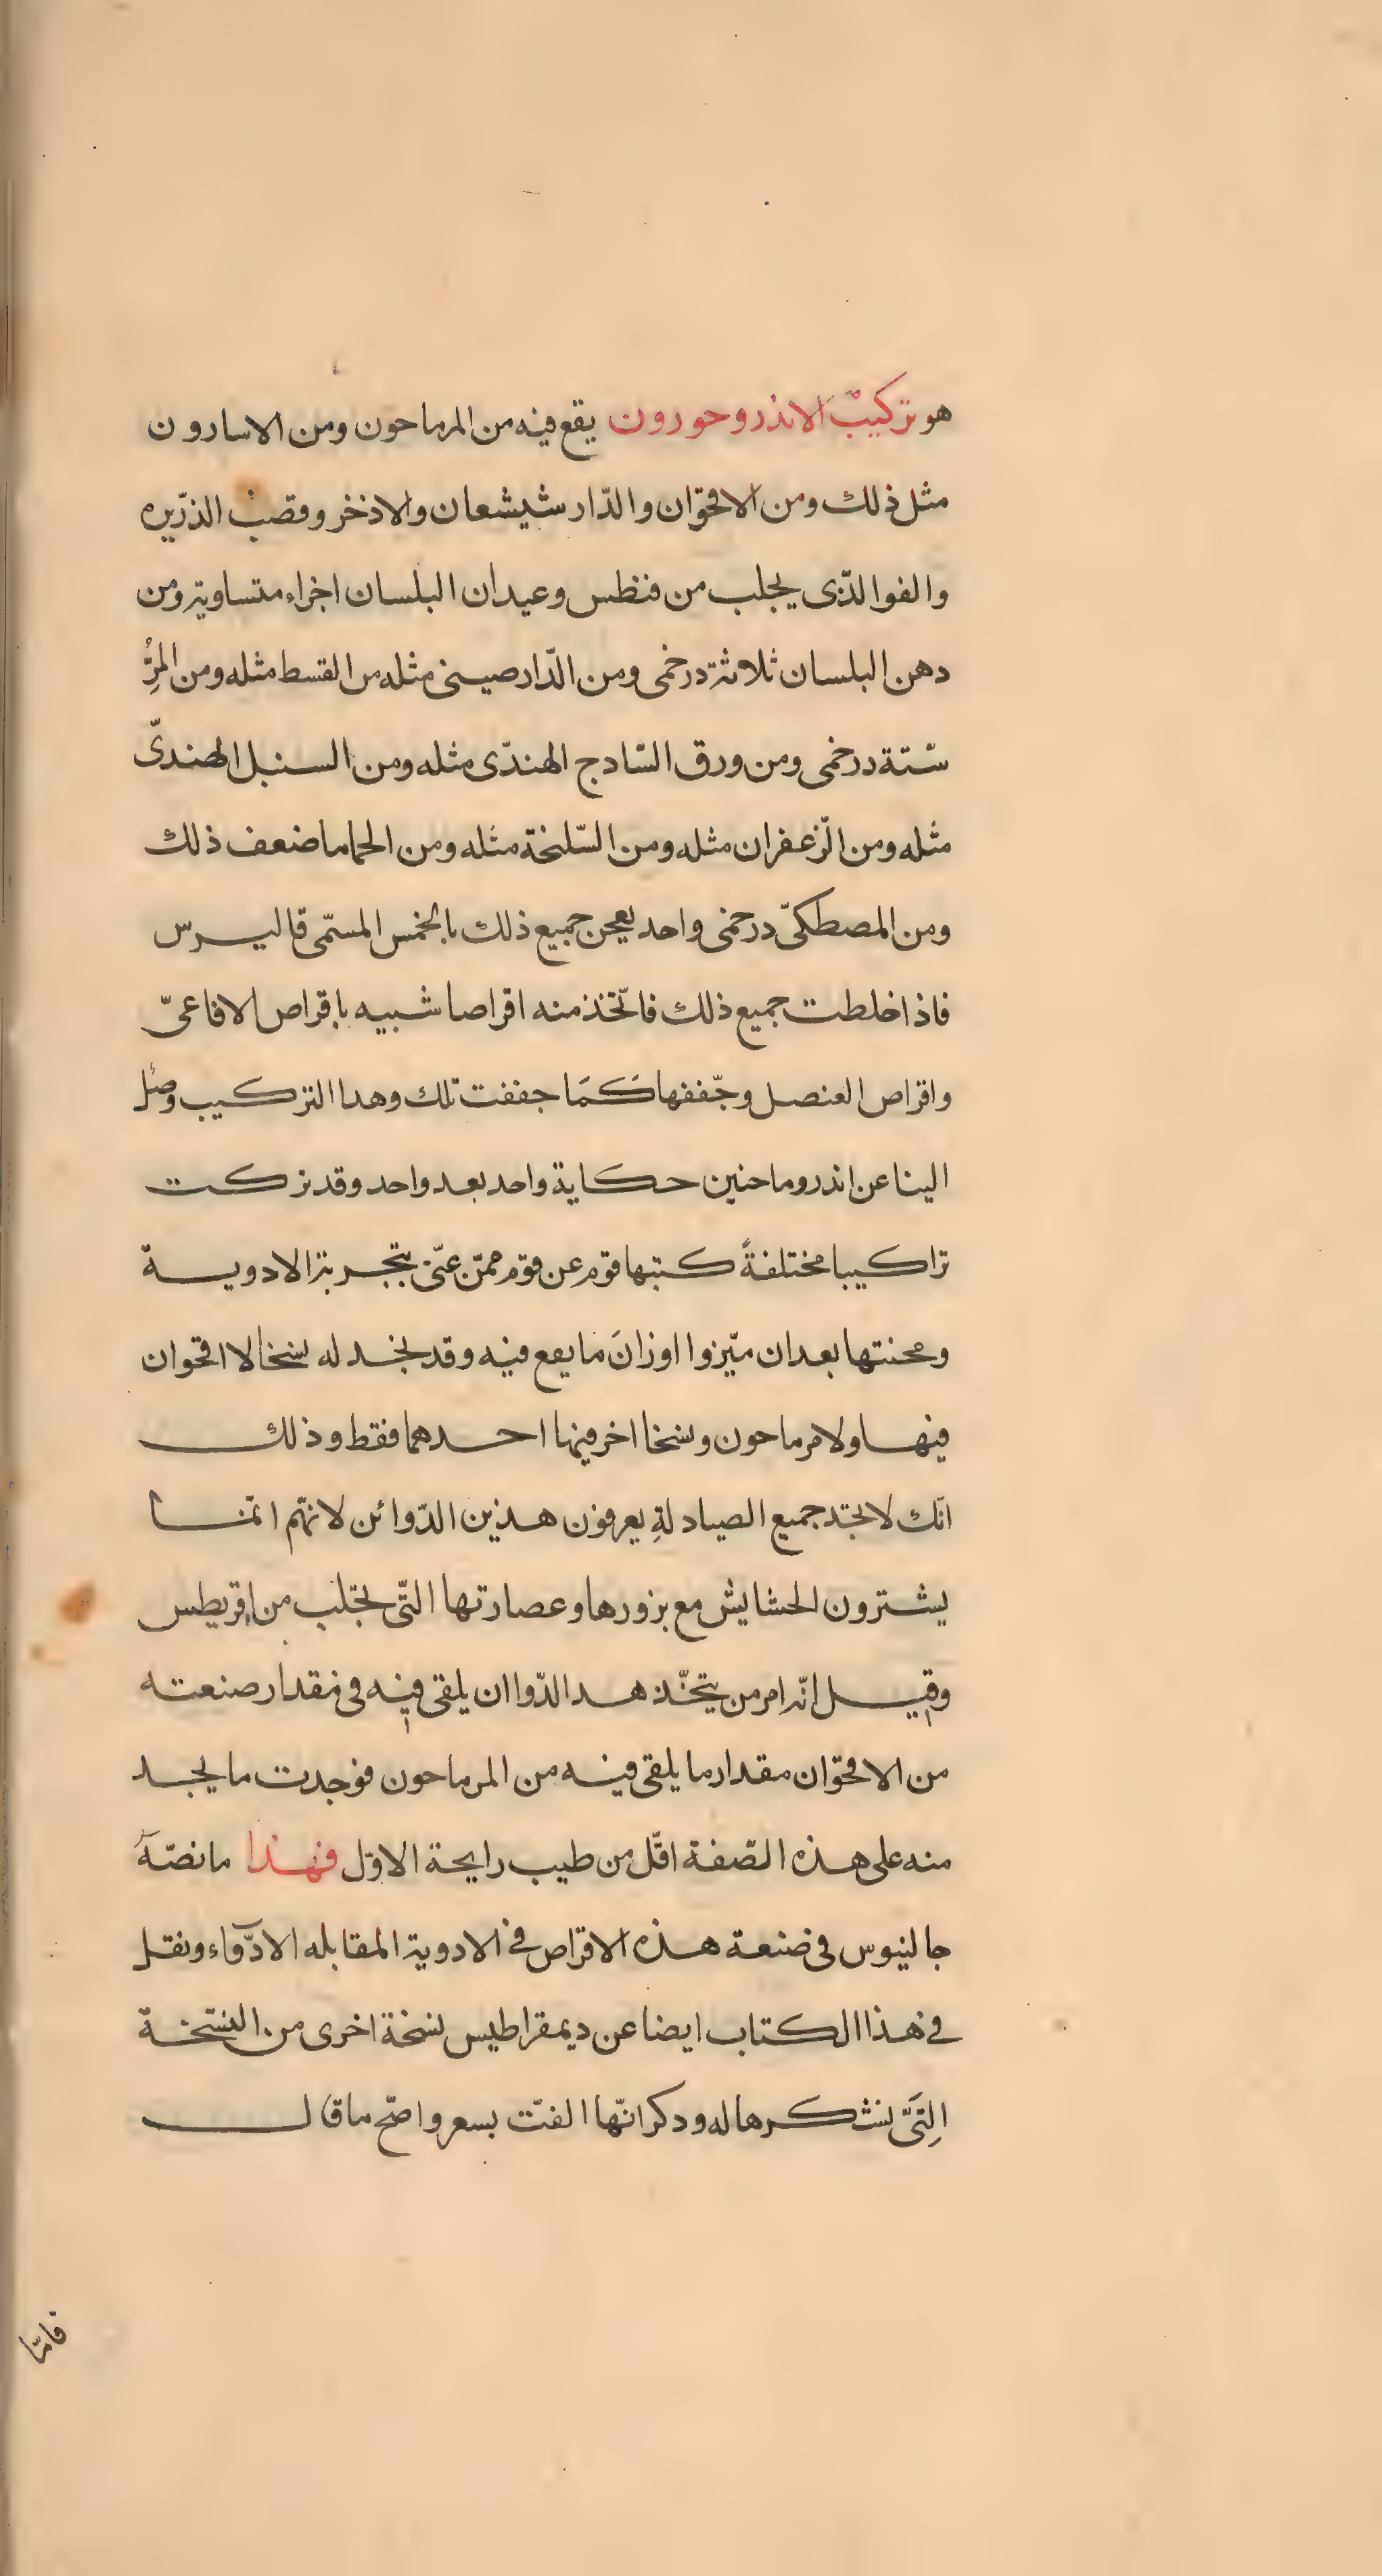 هو تركيب الاندروحورون يقع فيه من المرماحون ومن الاسارون
مثل ذلك ومن الاقحوّان والدّار شيشعان والاذخر وقصب الذرّيره
والفوا الذّى يجلب من فنطس وعيدان البلسان اجزاء متساوية ومن
دهن البلسان ثلاثة درخمى ومن الدّارصينى مثله من القسط مثله ومن المرّ
ستّة درخمى ومن ورق السّادج الهندّى مثله ومن السنبل الهندىّ
مثله ومن الزّعفران مثله ومن السّليخة مثله ومن الحماما ضعف ذلك
ومن المصطكىّ درخمى واحد يعجن جميع ذلك بالخمر المسمّى قاليرس
فاذا خلطت جميع ذلك فاتّخذ منه اقراصا شبيه باقراص الافاعىّ
واقراص العنصل وجّففها كَمَا جففت تلك وهدا التركيب وصل
الينا عن اندروماحنين حكاية واحد بعد واحد وقد تركت
تراكيبا مختلفةً كتبها قوم عن قوم ممّن عنّى بتجربة الادوية
ومحنتها بعد ان ميّزوا اوزانَ ما يقع فيه وقد نجد له نسخا لا اقحوان
فيها ولا مرماحون ونسخا اخر فيها احدهما فقط وذلك
انّك لا تجد جميع الصيادلةِ يعرفون هذين الدّوائن لانهّم انمّا
يشترون الحشايش مع بزورها وعصارتها التّى تجلب من اقريطس
وقيل انّه امر من يتخّذ هدا الدّوا ان يلقى فيه فى مقدار صنعته
من الاقحوّان مقدار ما يلقى فيه من المرماحون فوجدت ما يجد
منه على هذه الصّفة اقّل من طيب رايحة الاوّل فهذا ما نصّه
جالينوس فى صنعة هذه الاقراص فى الادوية المقابله الادّواء ونقل
فى هذا الكتاب ايضا عن ديمقراطيس نسخة اخرى من النسّخة
التَىّ نشكرها له ودكر انّها الفتّ بسعر واصّح ما قال
فامّا